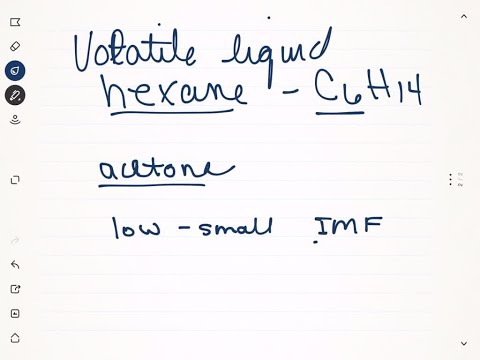 Volatile liquid
hexane - C6H14
acetone
low - small IMF